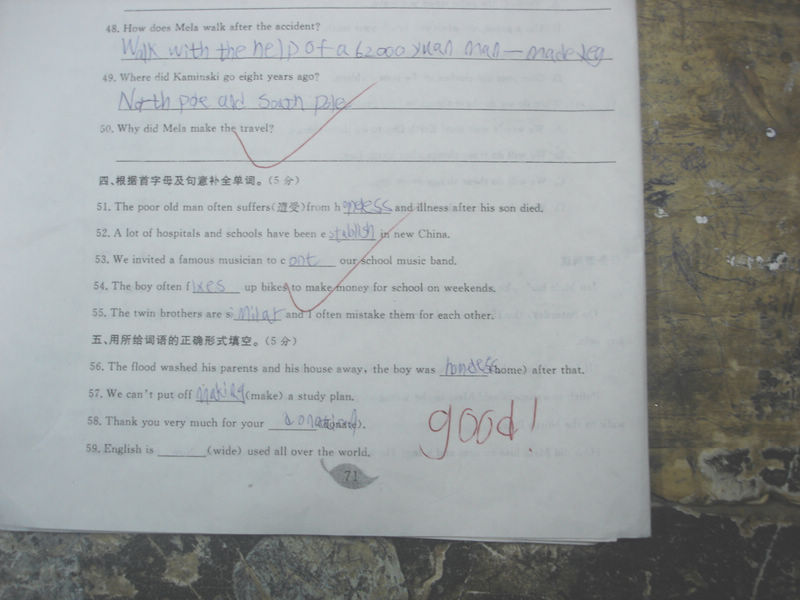 48. How does Mela walk after the accident?
Walk with the help of a 62000 yuan man—made leg
49. Where did Kaminski go eight years ago?
North poe and South Pole
50. Why did Mela make the travel?
四、根据首字母及句意补全单词。(5 分)
51. The poor old man often suffers(遭受)from h and illness after his son died.
52. A lot of hospitals and schools have been e stablish in new China.
53. We invited a famous musician to c ont our school music band.
54. The boy often f ixes up bikes to make money for school on weekends.
55. The twin brothers are s imilar and I often mistake them for each other.
五、用所给词语的正确形式填空。(5 分)
56. The flood washed his parents and his house away, the boy was (home) after that.
57. We can't put off making (make) a study plan.
58. Thank you very much for your donation (donate).
59. English is ______(wide) used all over the world.
good!
71